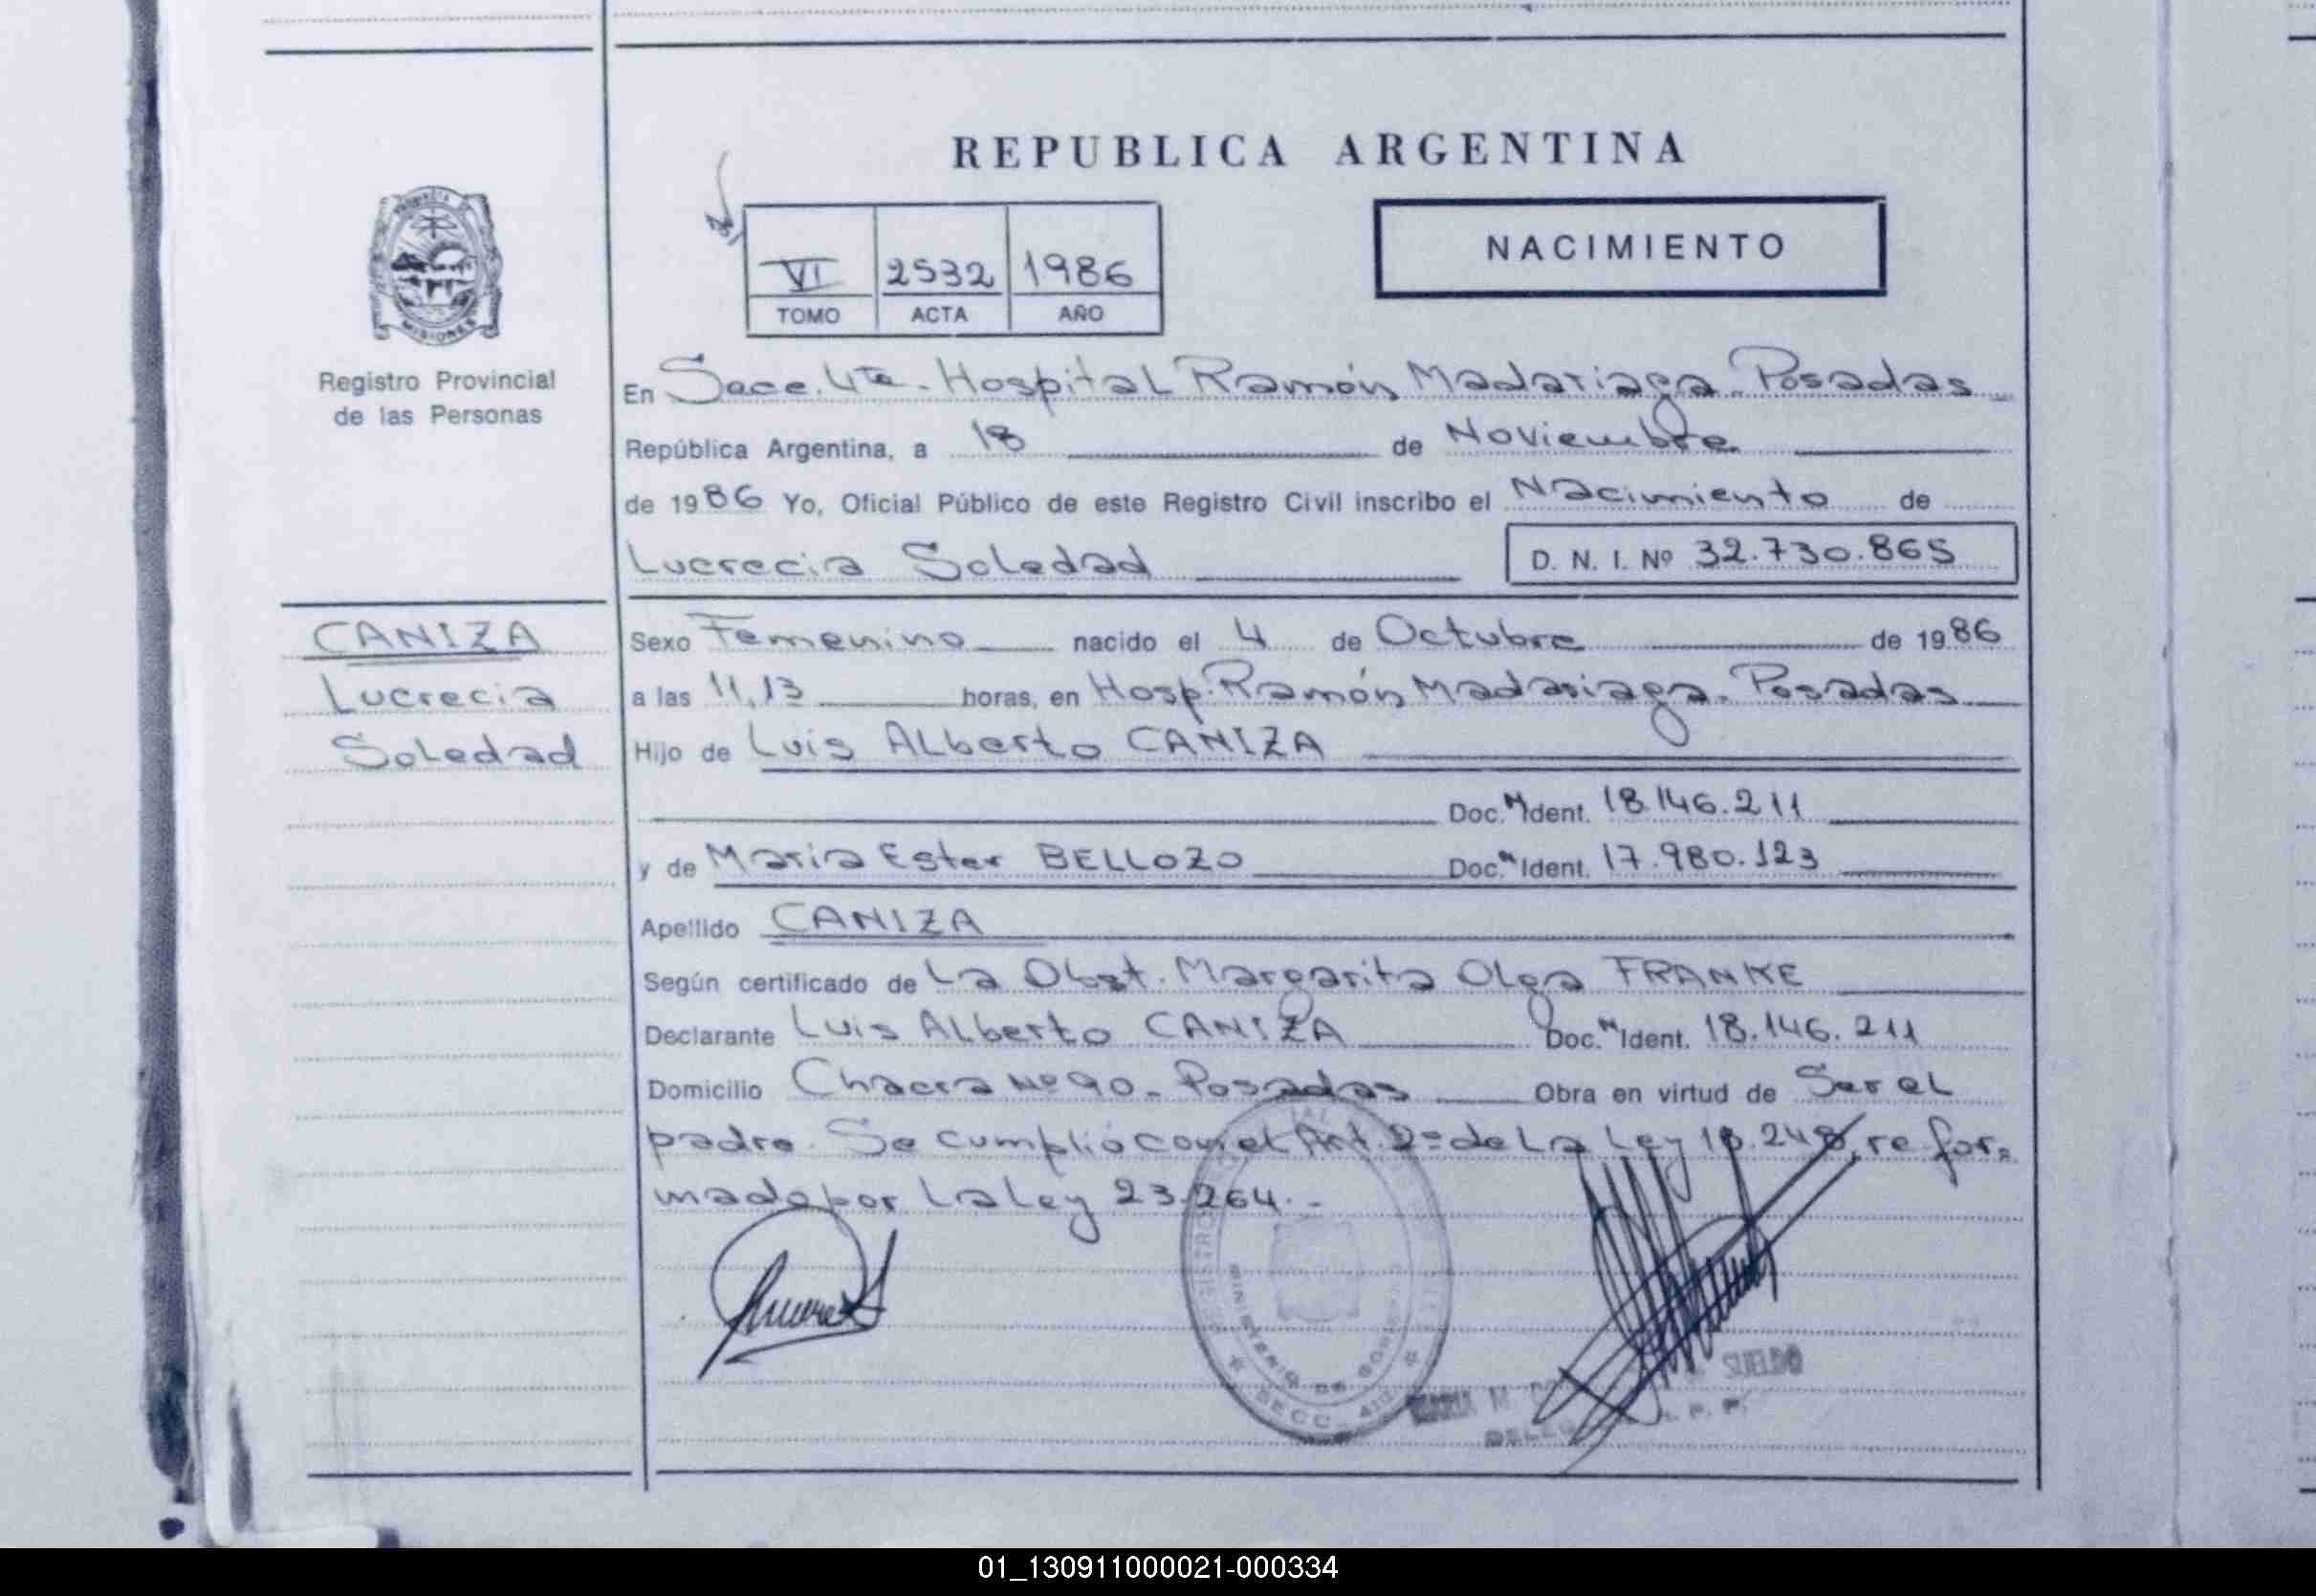 REPUBLICA ARGENTINA
VI 2532 1986
TOMO ACTA AÑO
NACIMIENTO
MISIONES
Registro Provincial
de las Personas
En Secc. 4ta. Hospital Ramón Madariaga - Posadas
República Argentina, a 18 de Noviembre
de 1986 Yo, Oficial Público de este Registro Civil inscribo el Nacimiento de
Lucrecia Soledad D. N. I. Nº 32.730.865
CANIZA
Lucrecia
Soledad
Sexo Femenino nacido el 4 de Octubre de 1986
a las 11,13 horas, en Hosp. Ramón Madariaga. Posadas
Hijo de Luis Alberto CANIZA
Doc. Ident. 18.146.211
y de Maria Ester BELLOZO Doc. Ident. 17.980.123
Apellido CANIZA
Según certificado de La Obst. Margarita Olga FRANKE
Declarante Luis Alberto CANIZA Doc. Ident. 18.146.211
Domicilio Chacra Nº 90 - Posadas Obra en virtud de Ser el
padre. Se cumplió con el Art. 2º de La Ley 18.248, refor=
mado por La Ley 23.264.-
MINISTERIO DE GOBIERNO
SECC. 4ta
MARIA M SUELDO
01_130911000021-000334